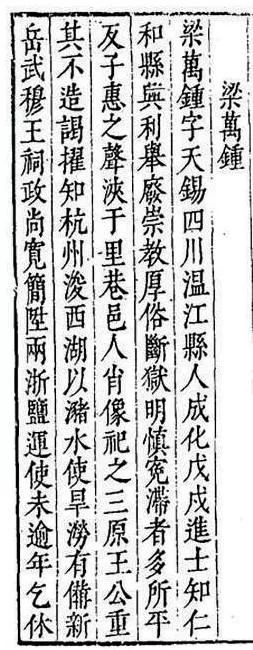 梁萬鍾
梁萬鍾字天錫四川温江縣人成化戊戌進士知仁
和縣興利舉廢崇教厚俗斷獄明慎冤滯者多所平
反子惠之聲浹于里巷邑人肖像祀之三原王公重
其不造謁擢知杭州浚西湖以瀦水使旱澇有備新
岳武穆王祠政尚寬簡陞兩浙鹽運使未逾年乞休